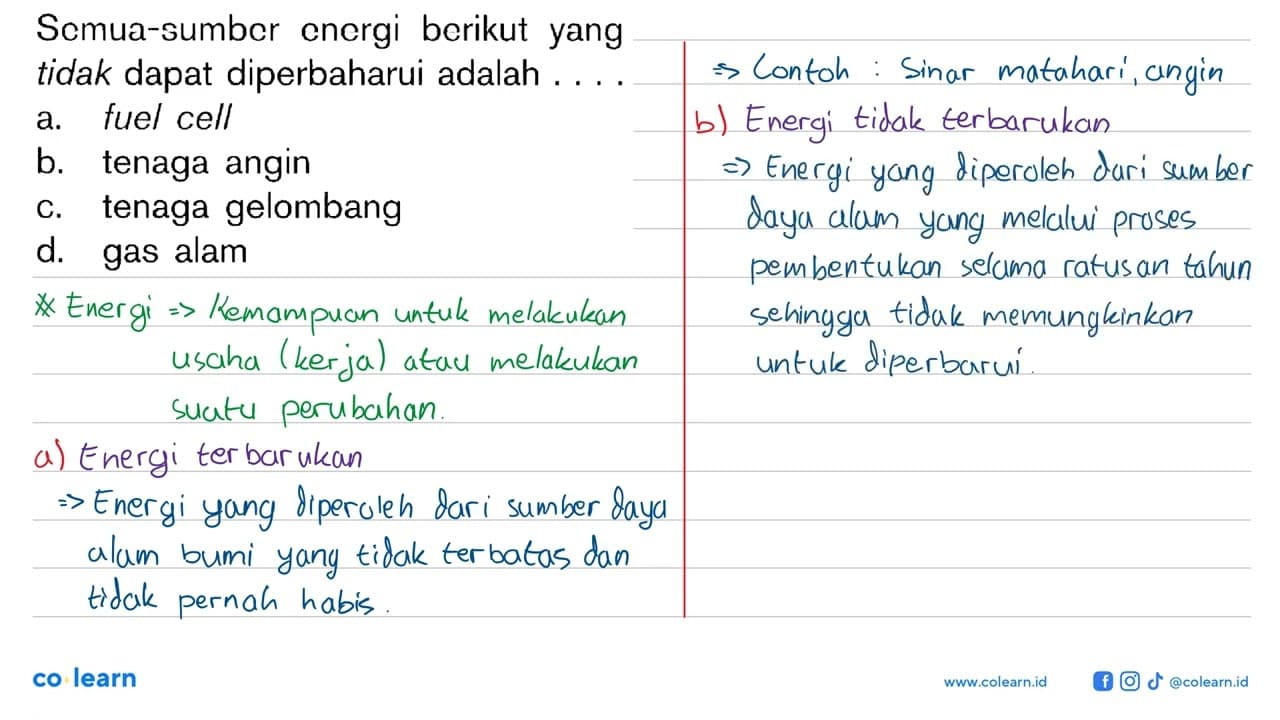 Semua-sumber energi berikut yang
tidak dapat diperbaharui adalah . . . .
a. fuel cell
b. tenaga angin
c. tenaga gelombang
d. gas alam
* Energi => Kemampuan untuk melakukan
usaha (kerja) atau melakukan
suatu perubahan.
a) Energi terbarukan
=> Energi yang diperoleh dari sumber daya
alam bumi yang tidak terbatas dan
tidak pernah habis.
=> Contoh : Sinar matahari, angin
b) Energi tidak terbarukan
=> Energi yang diperoleh dari sumber
daya alam yang melalui proses
pembentukan selama ratusan tahun
sehingga tidak memungkinkan
untuk diperbarui.
co learn
www.colearn.id
@colearn.id